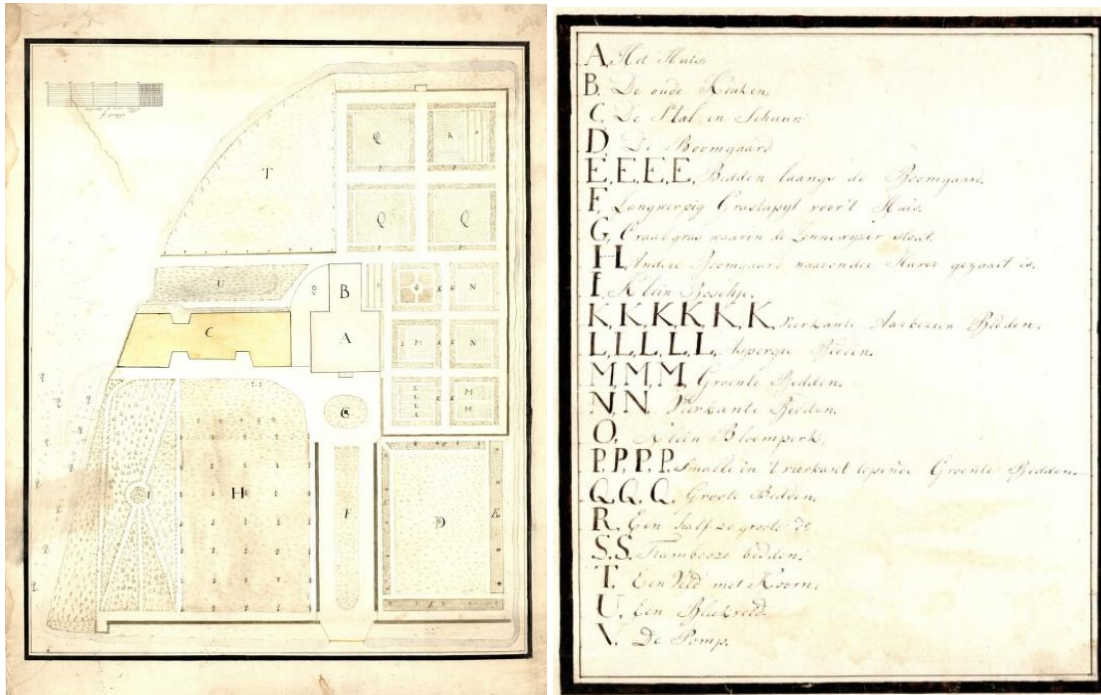 T
Q
R
Q
Q
U
B
N
C
A
M
N
G
M
M
I
H
F
D
E
A, Het Huis.
B. De oude Keuken.
C, De Stal en Schuur.
D De Boomgaard
E, E, E, E, Bedden laangs de Boomgaard.
F, Langwerpig Grastapyt voor't Huis.
G, gras waarin de Zonnewyzer staat.
H Andere Boomgaard waaronder Haver gezaait is.
I, Klein Boschje.
K, K, K, K, K, K, Vierkante Aarbezien Bedden.
L, L, L, L, L, Aspergie Bedden.
M, M, M, Groente Bedden.
N, N, Vierkante Bedden.
O, Klein Bloemperk,
P, P, P, P, Smalle in vierkant lopende Groente Bedden.
Q, Q, Q, Groote Bedden.
R, Een half zo groote
S, S, Frambooze bedden.
T. Een Veld met Koorn.
U, Een Bleekveld.
V. De Pomp.